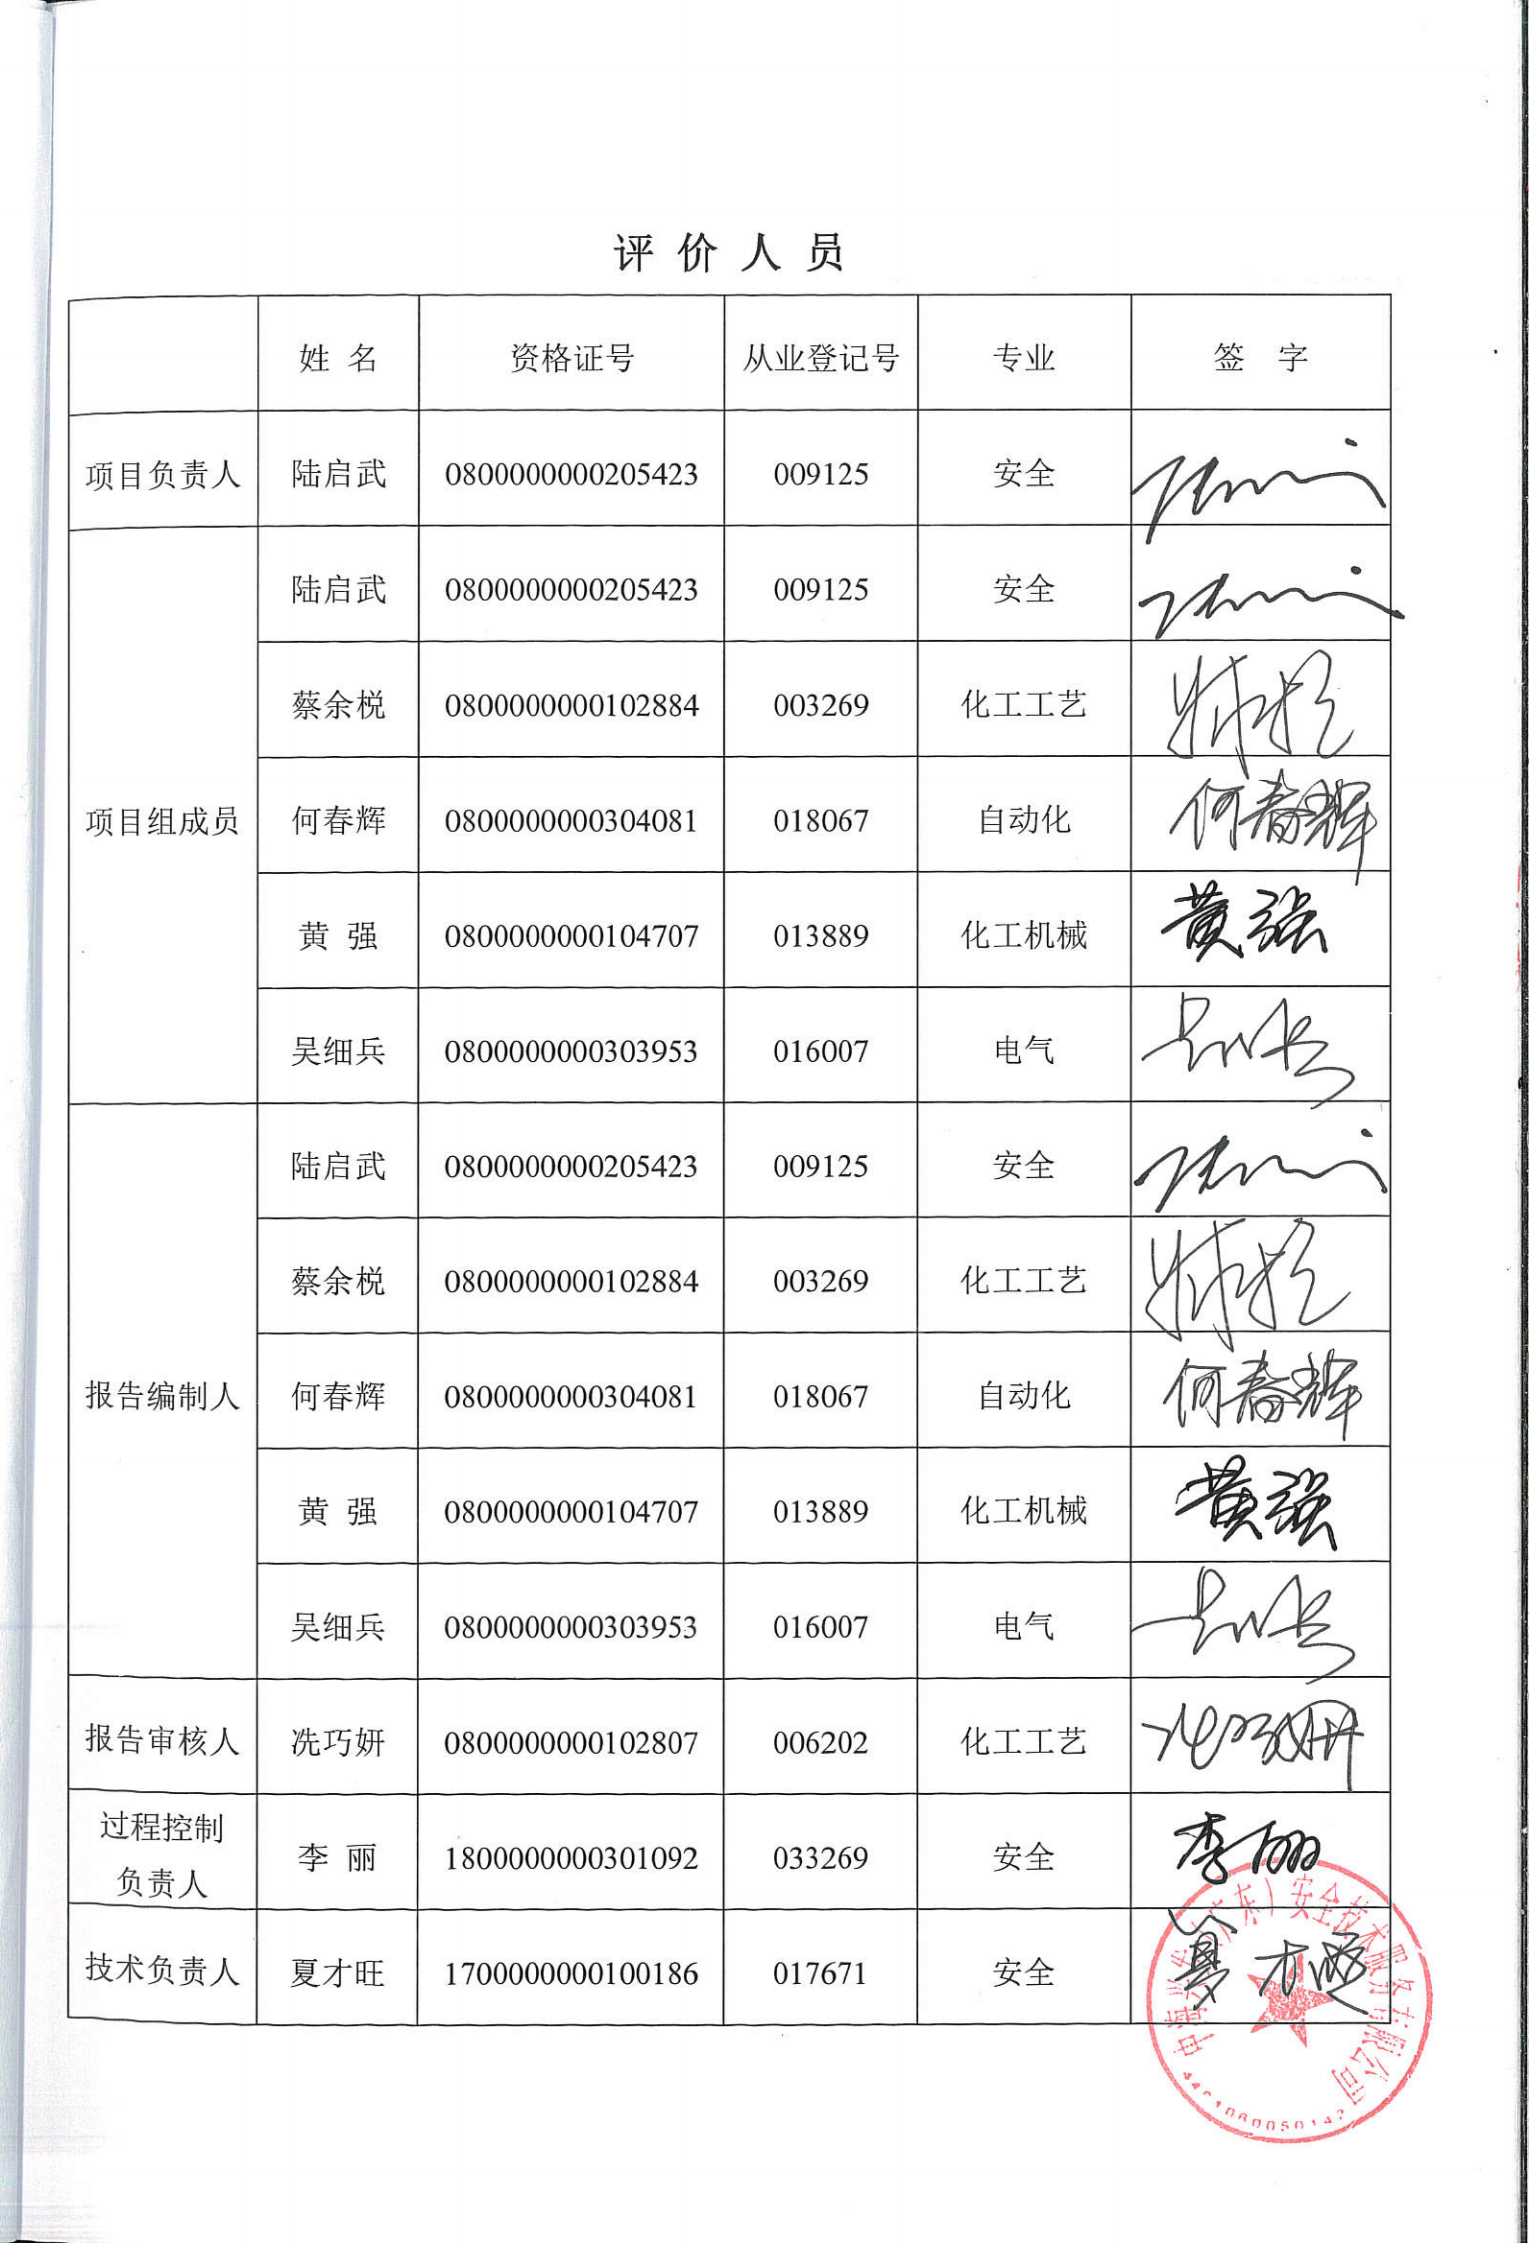 评价人员
姓 名 资格证号 从业登记号 专业 签 字
项目负责人 陆启武 0800000000205423 009125 安全
项目组成员
陆启武 0800000000205423 009125 安全
蔡余棁 0800000000102884 003269 化工工艺
何春辉 0800000000304081 018067 自动化 何春辉
黄 强 0800000000104707 013889 化工机械 黄强
吴细兵 0800000000303953 016007 电气
报告编制人
陆启武 0800000000205423 009125 安全
蔡余棁 0800000000102884 003269 化工工艺
何春辉 0800000000304081 018067 自动化 何春辉
黄 强 0800000000104707 013889 化工机械 黄强
吴细兵 0800000000303953 016007 电气
报告审核人 冼巧妍 0800000000102807 006202 化工工艺
过程控制
负责人
李 丽 1800000000301092 033269 安全 李丽
技术负责人 夏才旺 1700000000100186 017671 安全 夏才旺
广东）安全技术服务有限公司